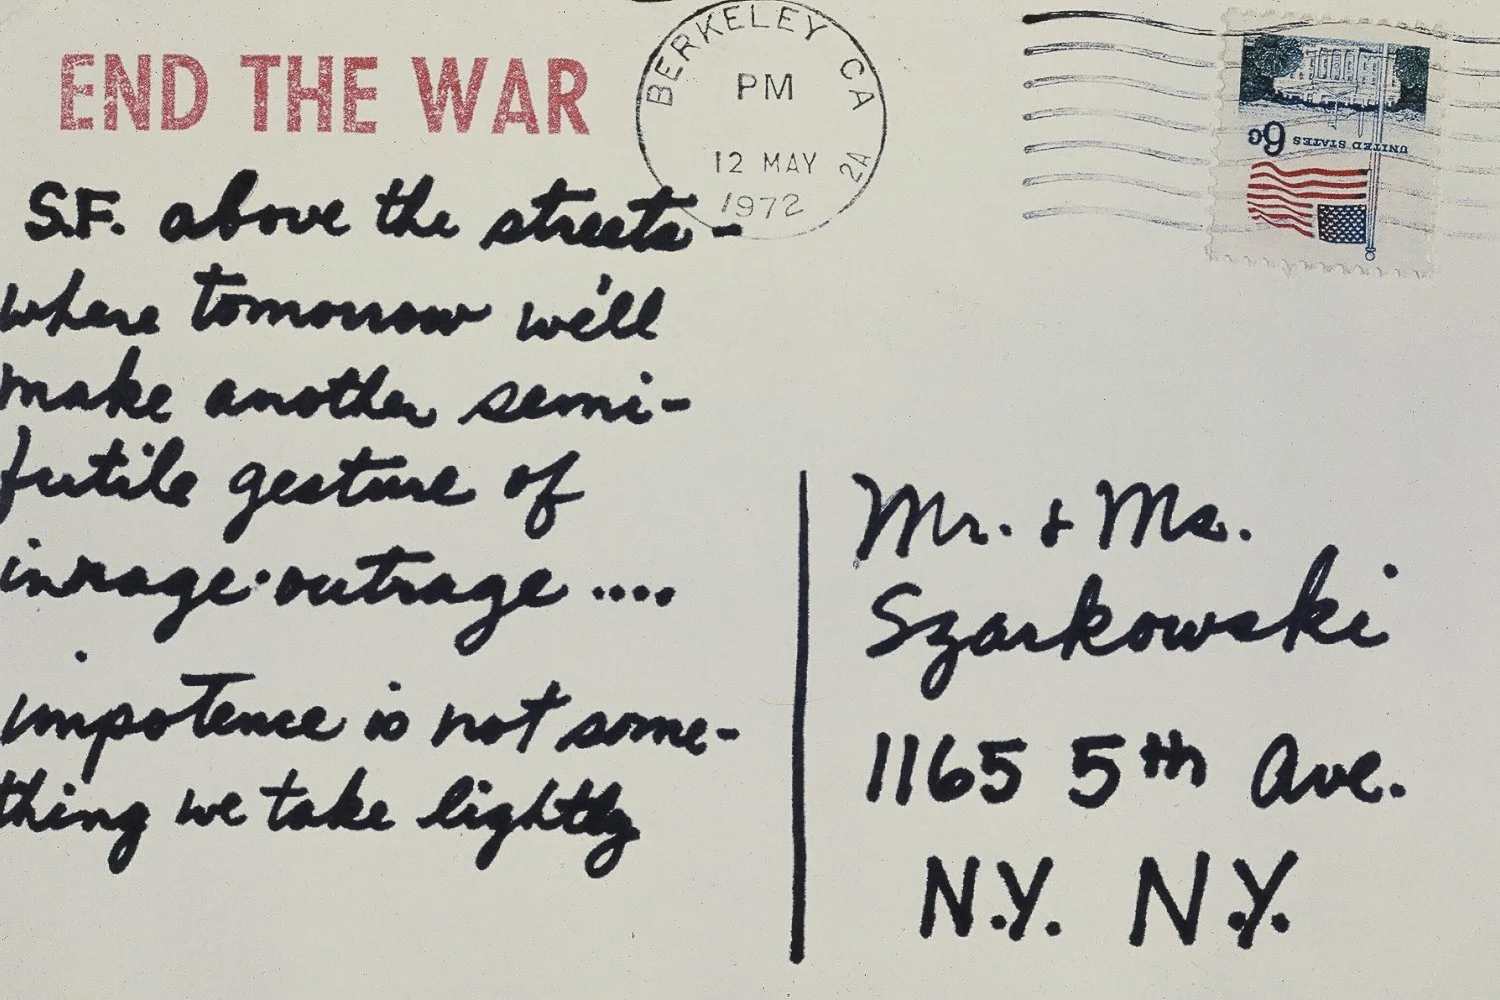 END THE WAR
BERKELEY CA
PM
12 MAY
1972
2A
6c UNITED STATES
S.F. above the streets -
where tomorrow we'll
make another semi-
futile gesture of
inrage·outrage ....
impotence is not some-
thing we take lightly
Mr. & Ms.
Szarkowski
1165 5th Ave.
N.Y. N.Y.